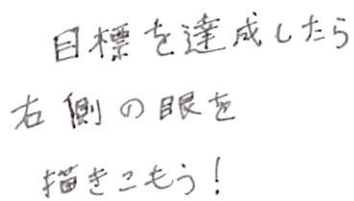 目標を達成したら
右側の眼を
描きこもう!